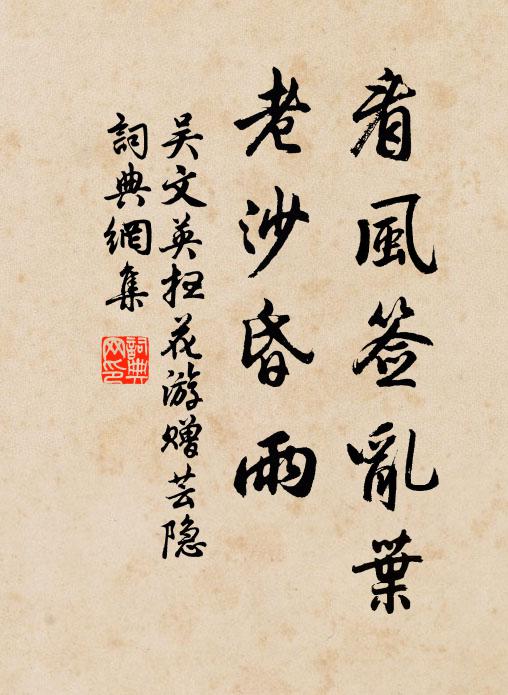 看風签亂葉
老沙昏雨
吴文英扫花游赠芸隐
詞典網集
詞典網印